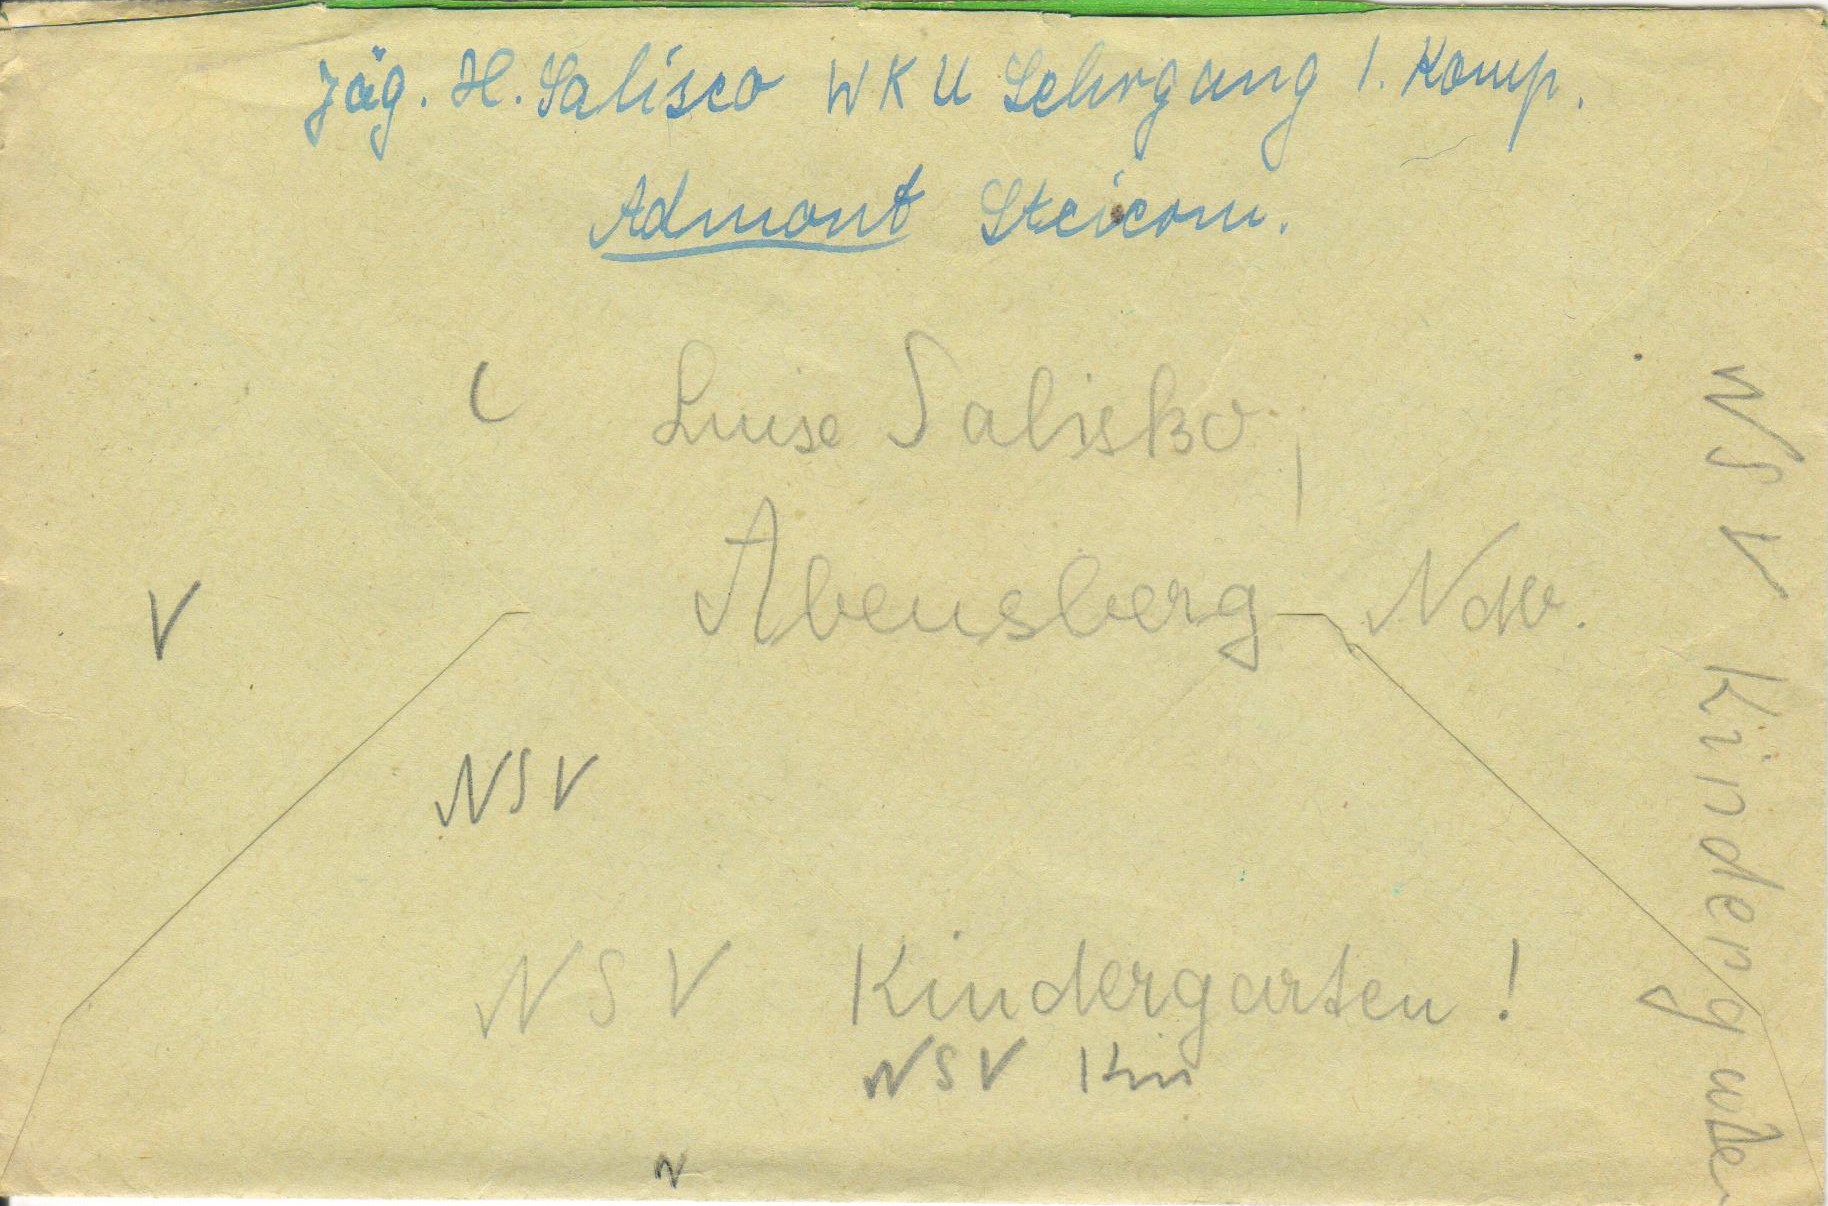 Jäg. H. Salisco WKU Lehrgang 1. Komp.
Admont Steierm.
Luise Salisko,
Abensberg Ndb.
V
NSV
NSV Kindergarten!
NSV Kin
N
NSV Kindergarten